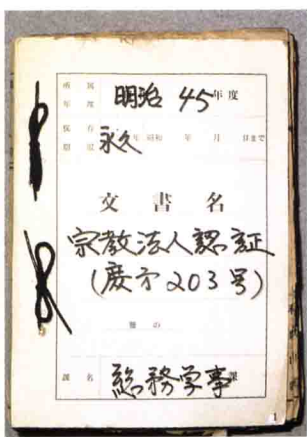 所属年度 明治 45 年度
保存期限 永久 年 昭和 年 月 日まで
文書名
宗教法人認証
(廃寺203号)
冊の
課名 総務学事課
1